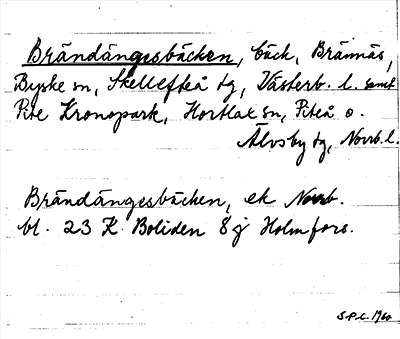 Brändängesbäcken, bäck, Brännäs,
Byske sn, Skellefteå tg, Västerb. l. samt
Pite Kronopark, Hortlax sn, Piteå o.
Älvsby tg, Norrb. l.
Brändängesbäcken, ek Norrb.
bl. 23 K Boliden 8 j Holmfors.
S.P.C. 1960